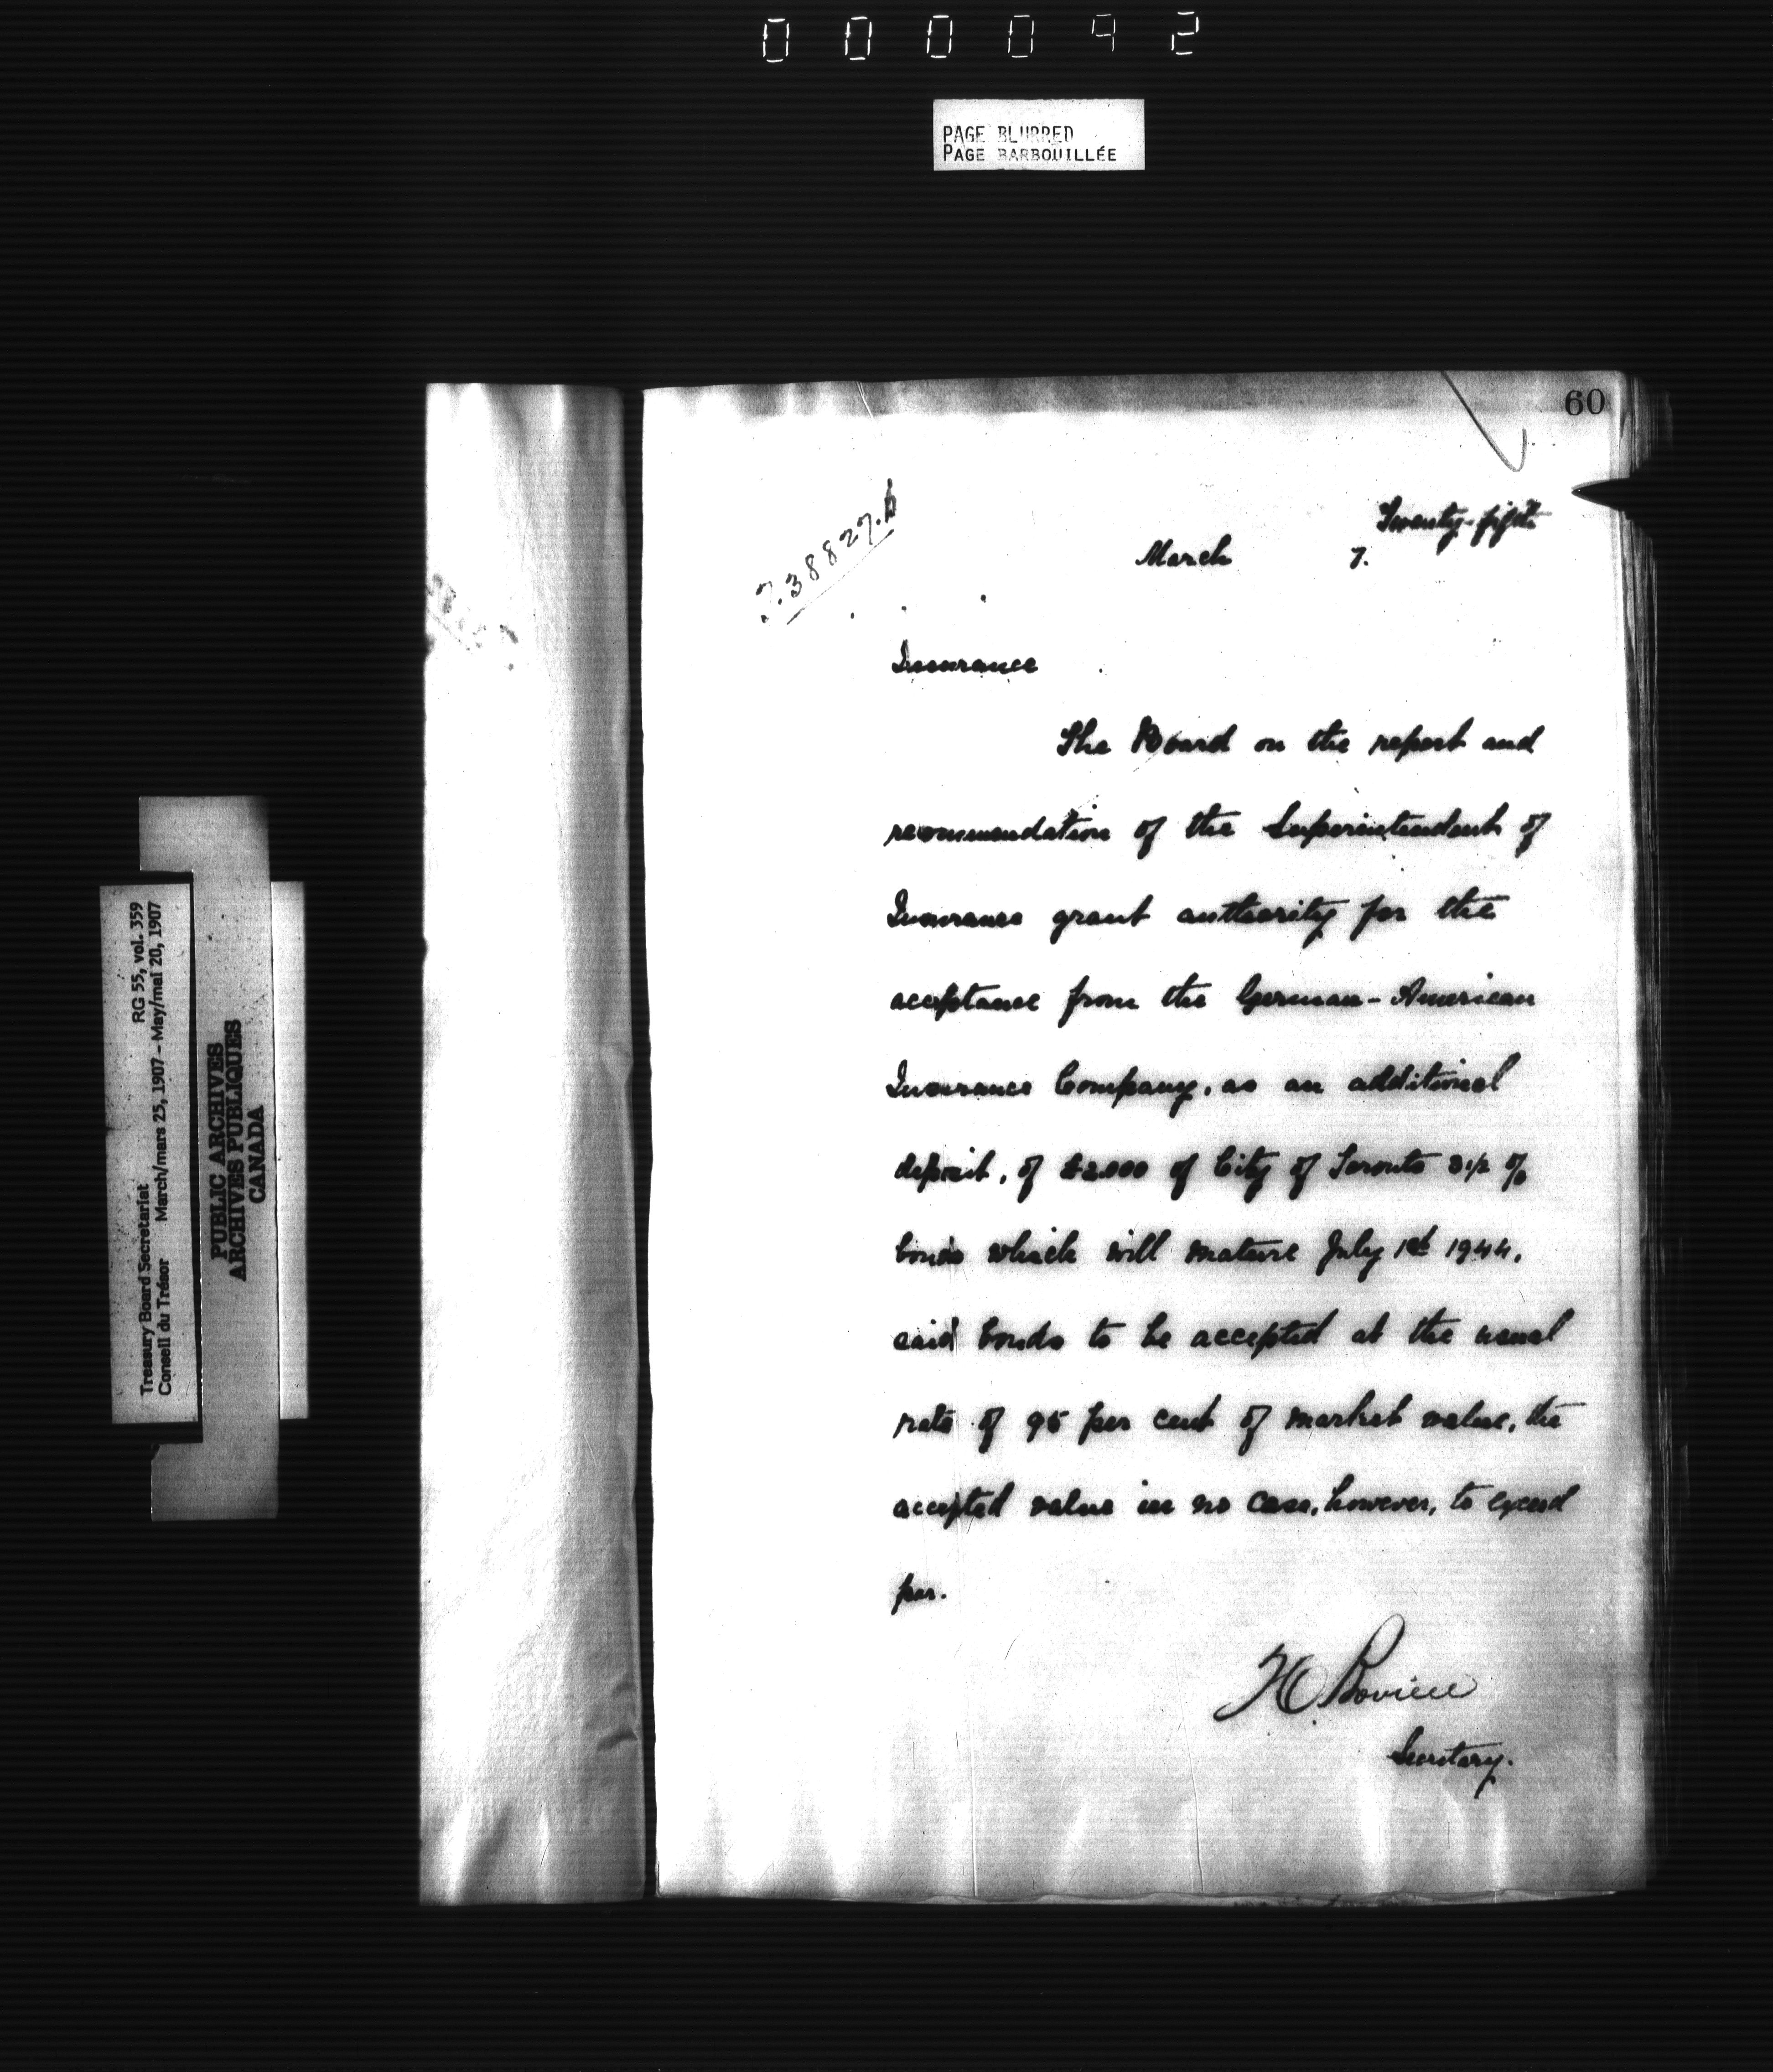 000092
PAGE BLURRED
PAGE BARBOUILLÉE
60
Twenty-fifth
March 7.
Insurance
The Board on the report and
recommendation of the Superintendent of
Insurance grant authority for the
acceptance from the German-American
Insurance Company, as an additional
deposit, of $2000 of City of Toronto 3 1/2 %
bonds which will mature July 1st 1944,
said bonds to be accepted at the usual
rate of 95 per cent of market value, the
accepted value in no case, however, to exceed
par.
Secretary.
Treasury Board Secretariat RG 55, vol. 359
Conseil du Trésor March/mars 25, 1907 – May/mai 20, 1907
PUBLIC ARCHIVES
ARCHIVES PUBLIQUES
CANADA